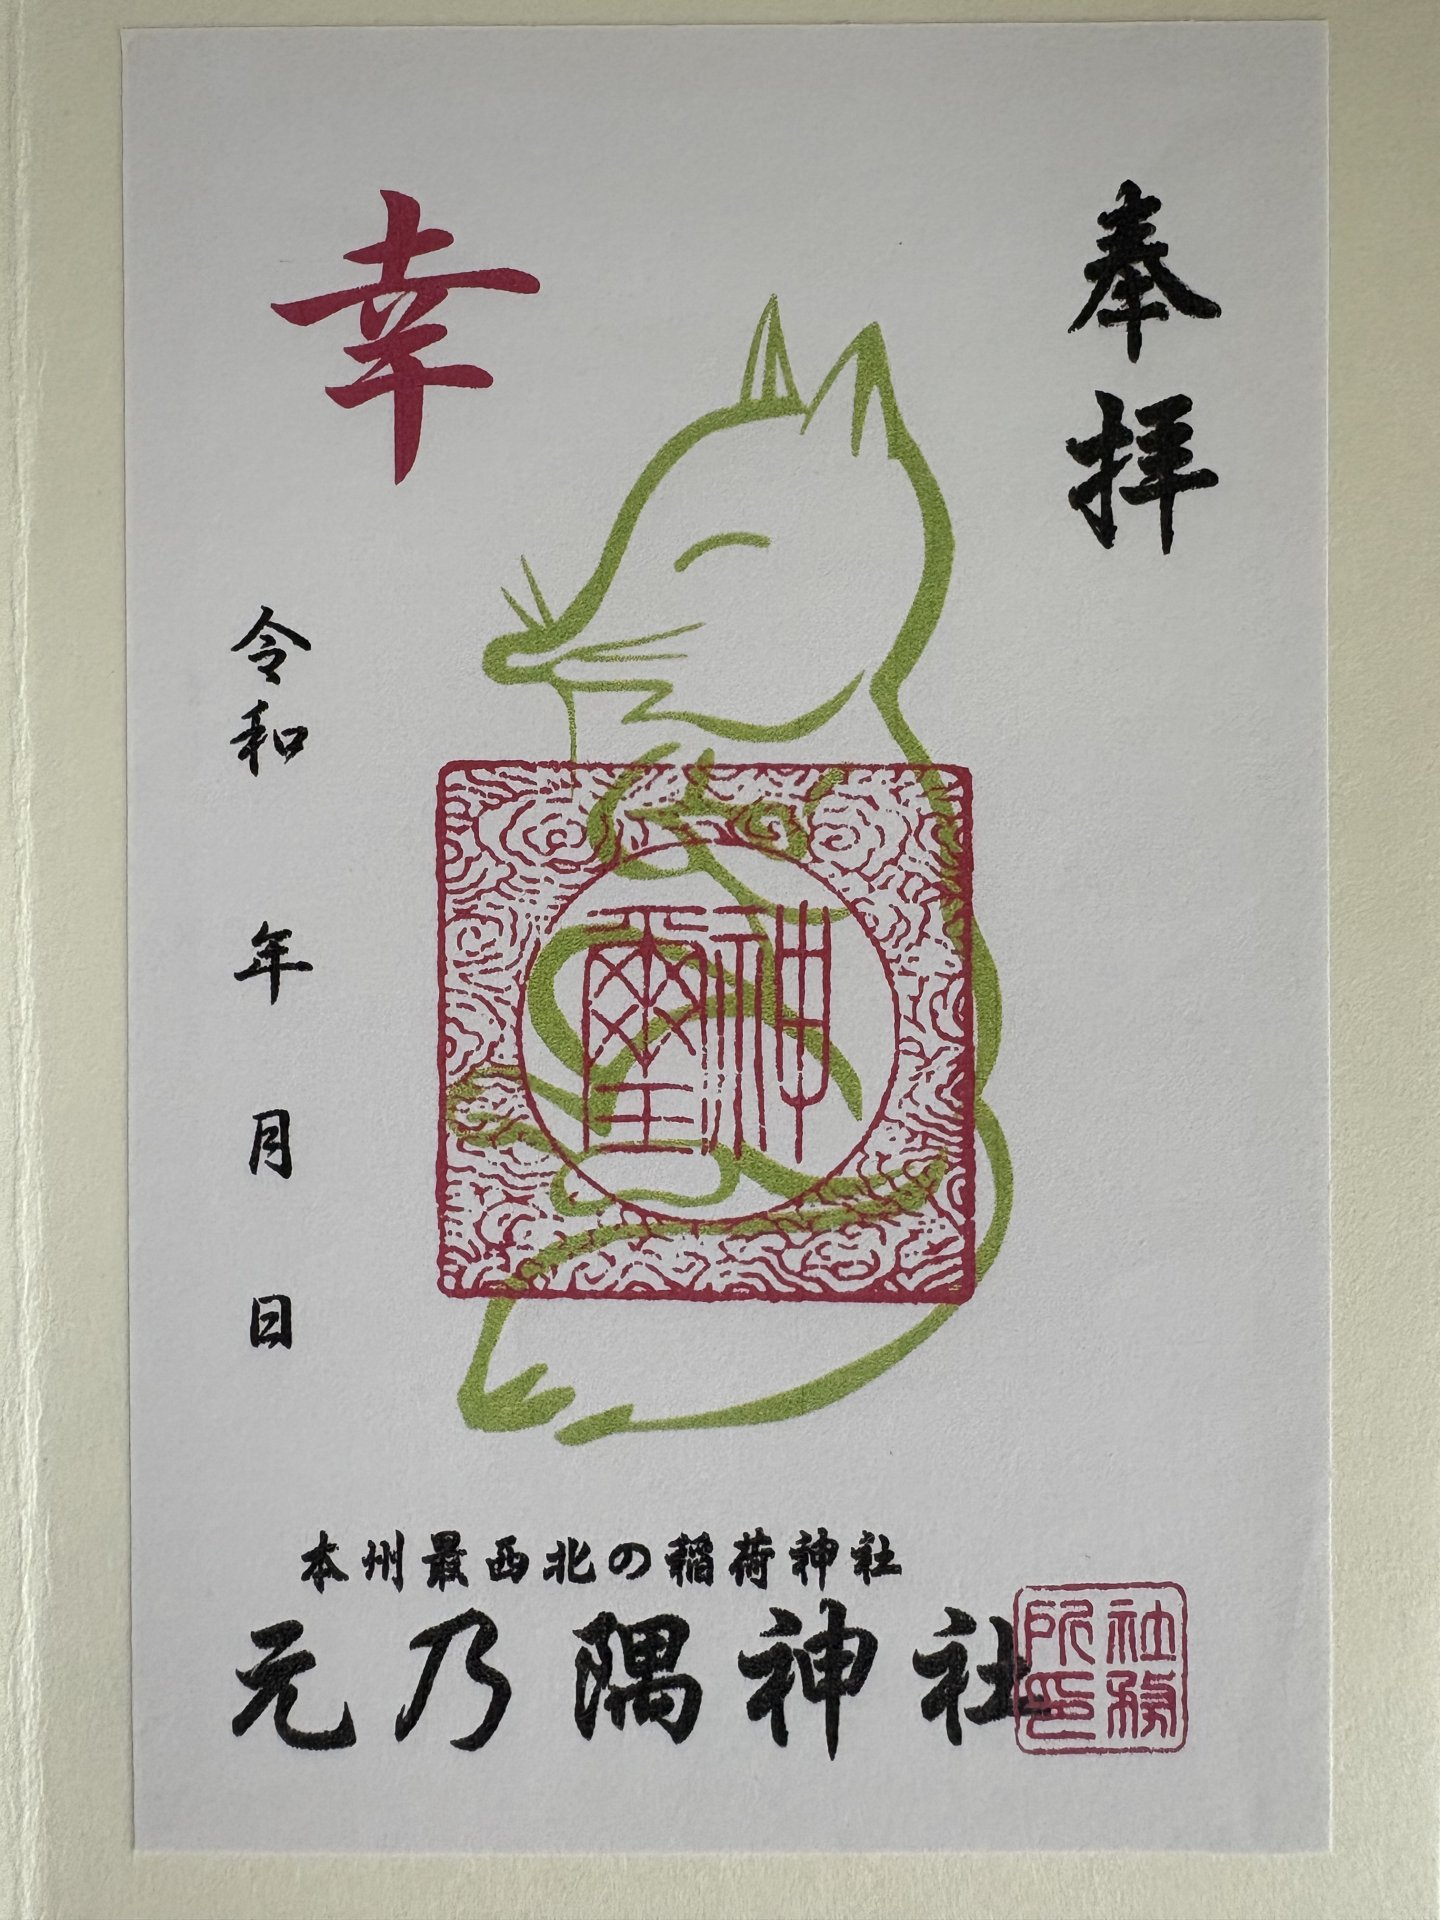 奉拝
幸
令和 年 月 日
神璽
本州最西北の稲荷神社
元乃隅神社
社務所印